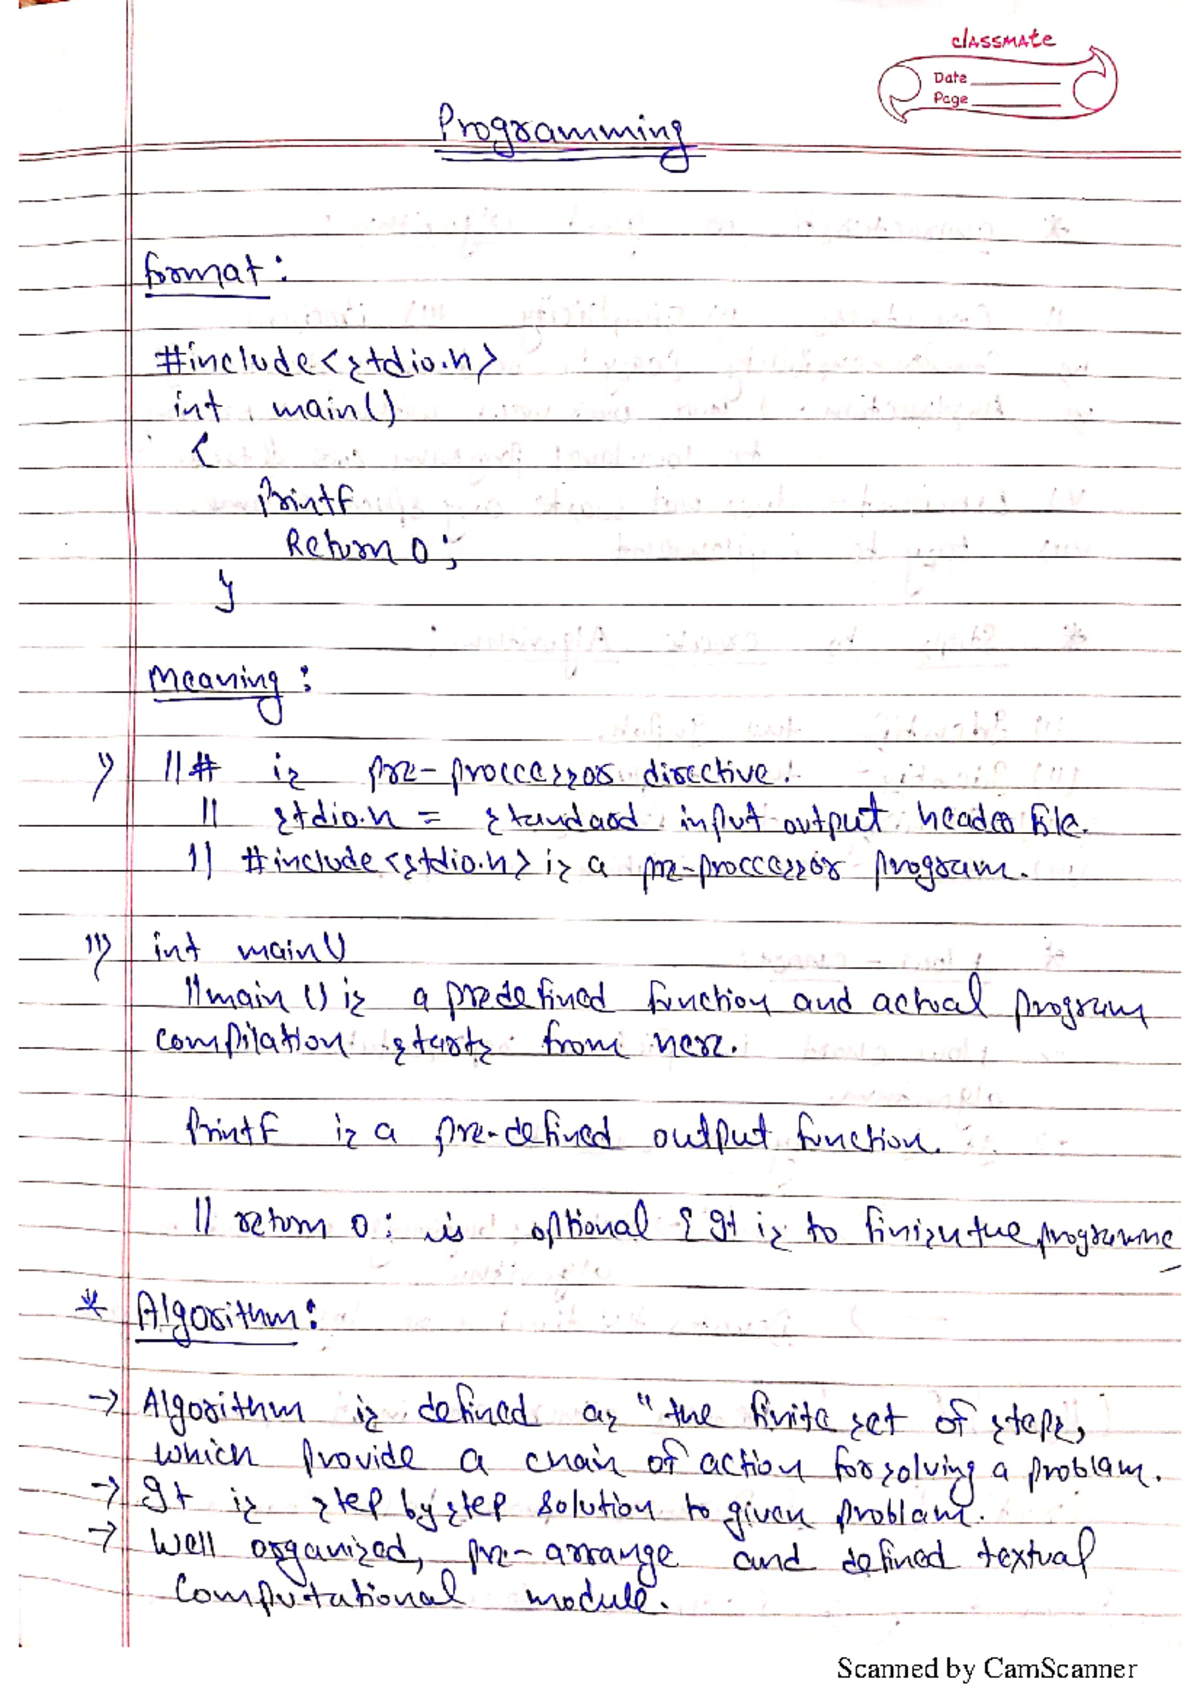 classmate
Date
Page
Programming
format:
#include<stdio.h>
int main()
{
Printf
Return 0;
}
Meaning:
i) ||# is pre-proccessor directive.
|| stdio.h = standard input output header file.
|| #include<stdio.h> is a pre-proccessor program.
iii) int main()
||main () is a predefined function and actual program
compilation starts from here.
Printf is a pre-defined output function.
|| return 0; is optional & It is to finish the programme
* Algorithm:
→ Algorithm is defined as "the finite set of steps,
which provide a chain of action for solving a problem.
→ It is step by step solution to given problem.
→ Well organized, pre-arrange and defined textual
Computational module.
Scanned by CamScanner